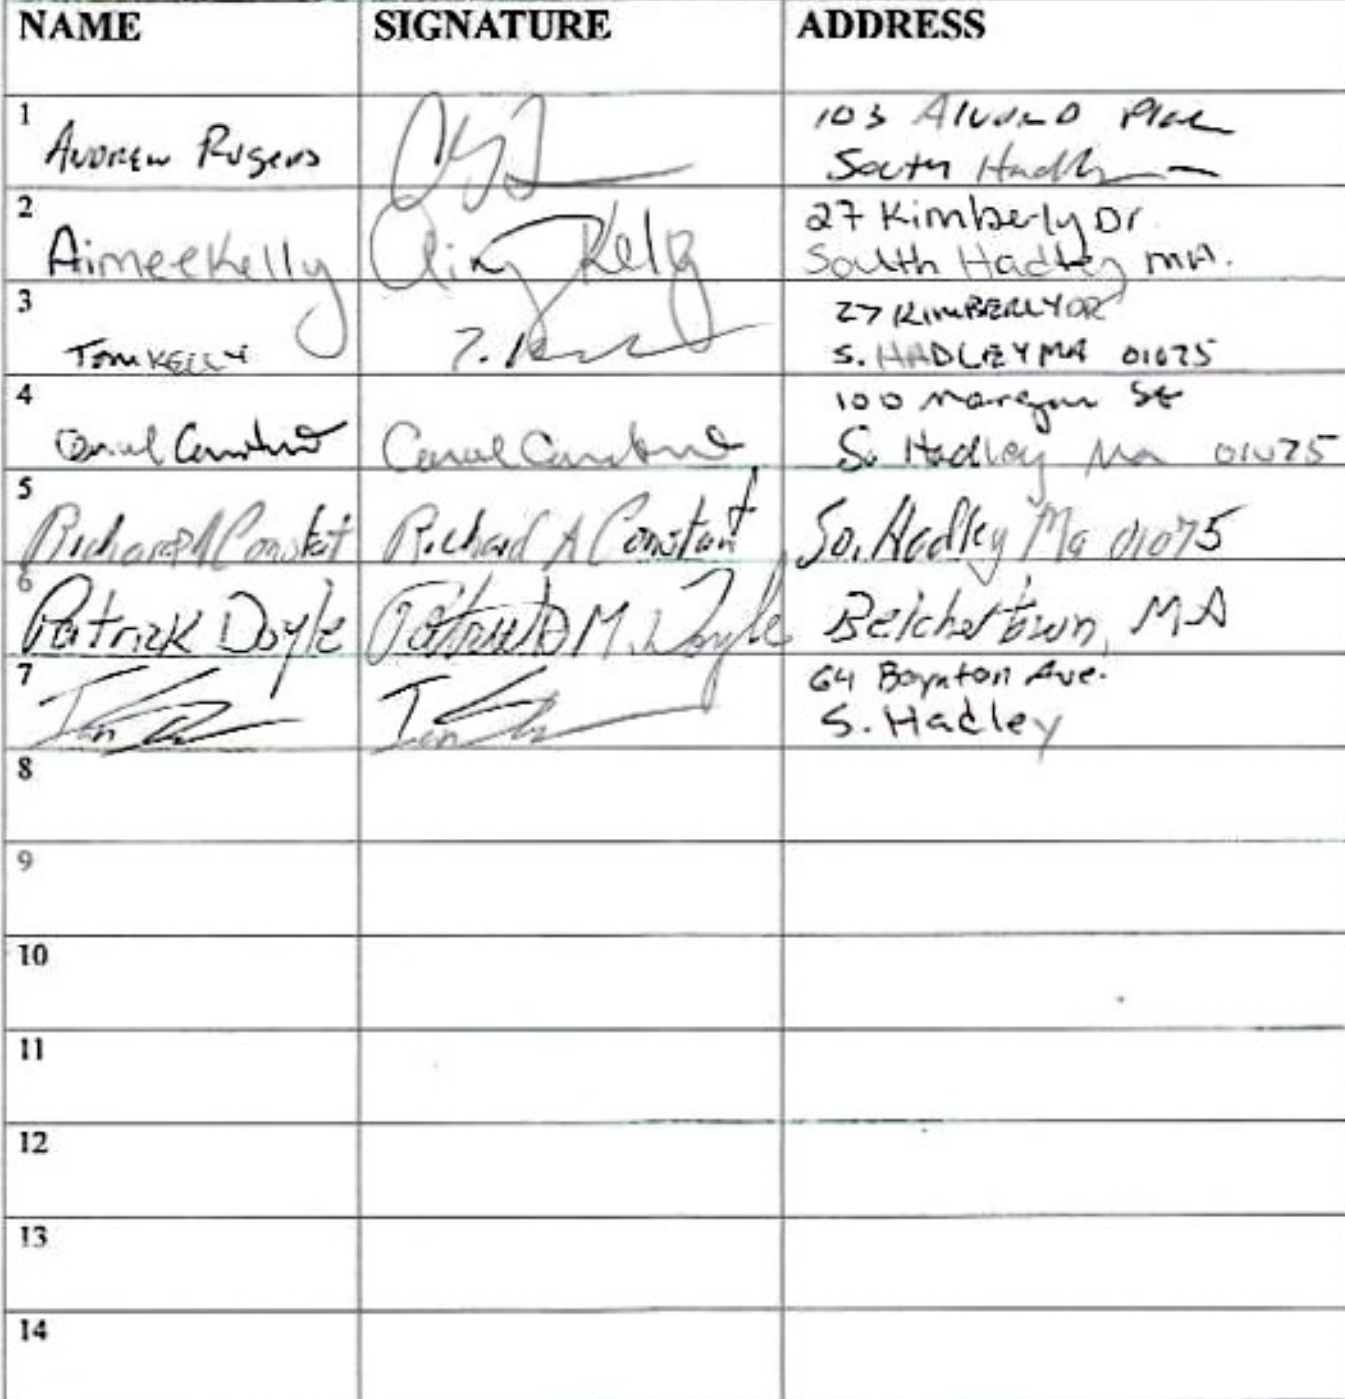 NAME SIGNATURE ADDRESS
1 Andrew Rogers 103 Alvord Place
South Hadley
2 Aimee Kelly Aimee Kelly 27 Kimberly Dr.
South Hadley MA.
3 27 KIMBERLY DR
TOM KELLY T. S. HADLEY MA 01075
4 100 Morgan St
Carol Constant Carol Constant So Hadley Ma 01075
5 Richard A Constant Richard A Constant So. Hadley Ma 01075
6 Patrick Doyle Patrick M. Doyle Belchertown, MA
7 Ian Ian 64 Boynton Ave.
S. Hadley
8
9
10
11
12
13
14